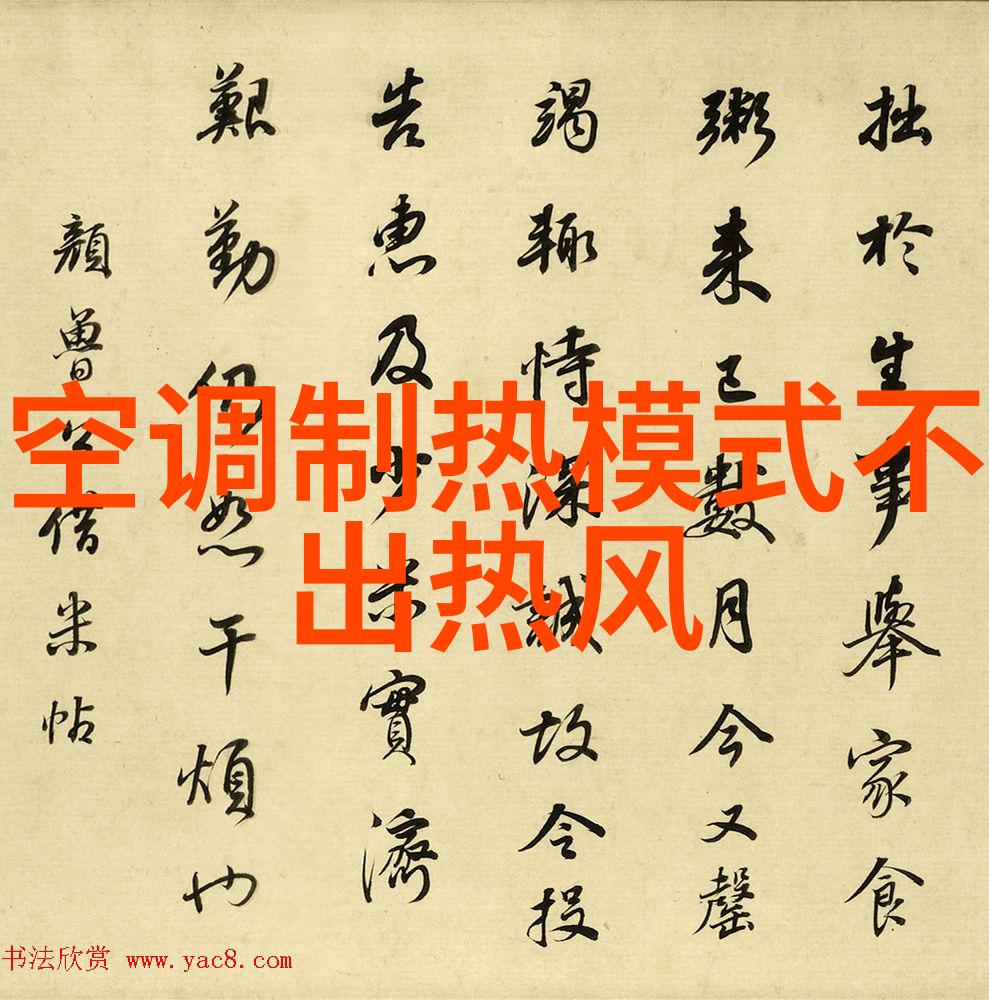 拙於生事舉家食
粥来已數月今又罄
竭輙恃深誠故令投
告惠及少米實濟
艱勤仍恕干煩也
顔魯公借米帖
空调制热模式不
出热风
书法欣赏 www.yac8.com